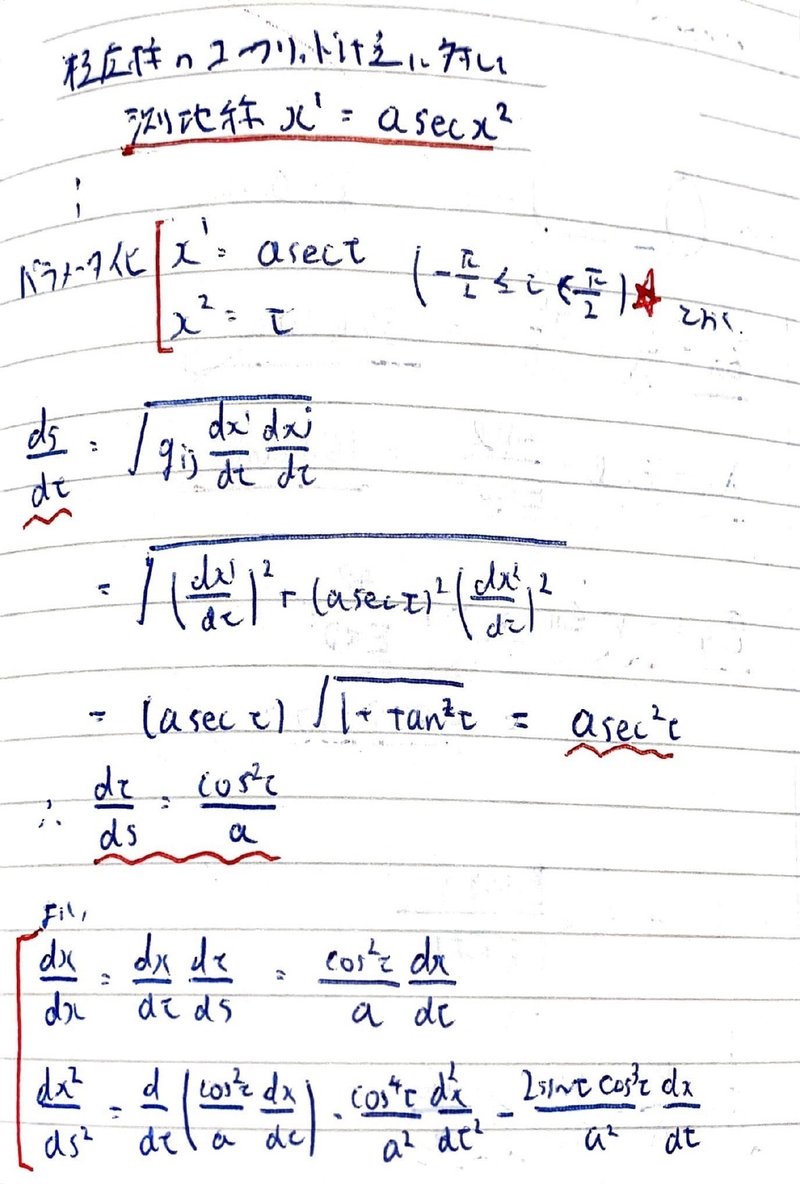 極座標のユークリッド計量に対し
測地線 x¹ = a sec x²
⋮
パラメータ化 [ x¹ = a sec τ (-π/2 ≤ τ < π/2) ★
x² = τ
ds/dτ = √(g_ij dxⁱ/dτ dxʲ/dτ)
= √((dx¹/dτ)² + (a sec τ)² (dx²/dτ)²)
= (a sec τ) √(1 + tan²τ) = a sec²τ
∴ dτ/ds = cos²τ/a
より、
dx/dx = dx/dτ dτ/ds = cos²τ/a dx/dτ
dx²/ds² = d/dτ (cos²τ/a dx/dτ) = cos⁴τ/a² d²x/dτ² - 2sinτ cos³τ/a² dx/dτ